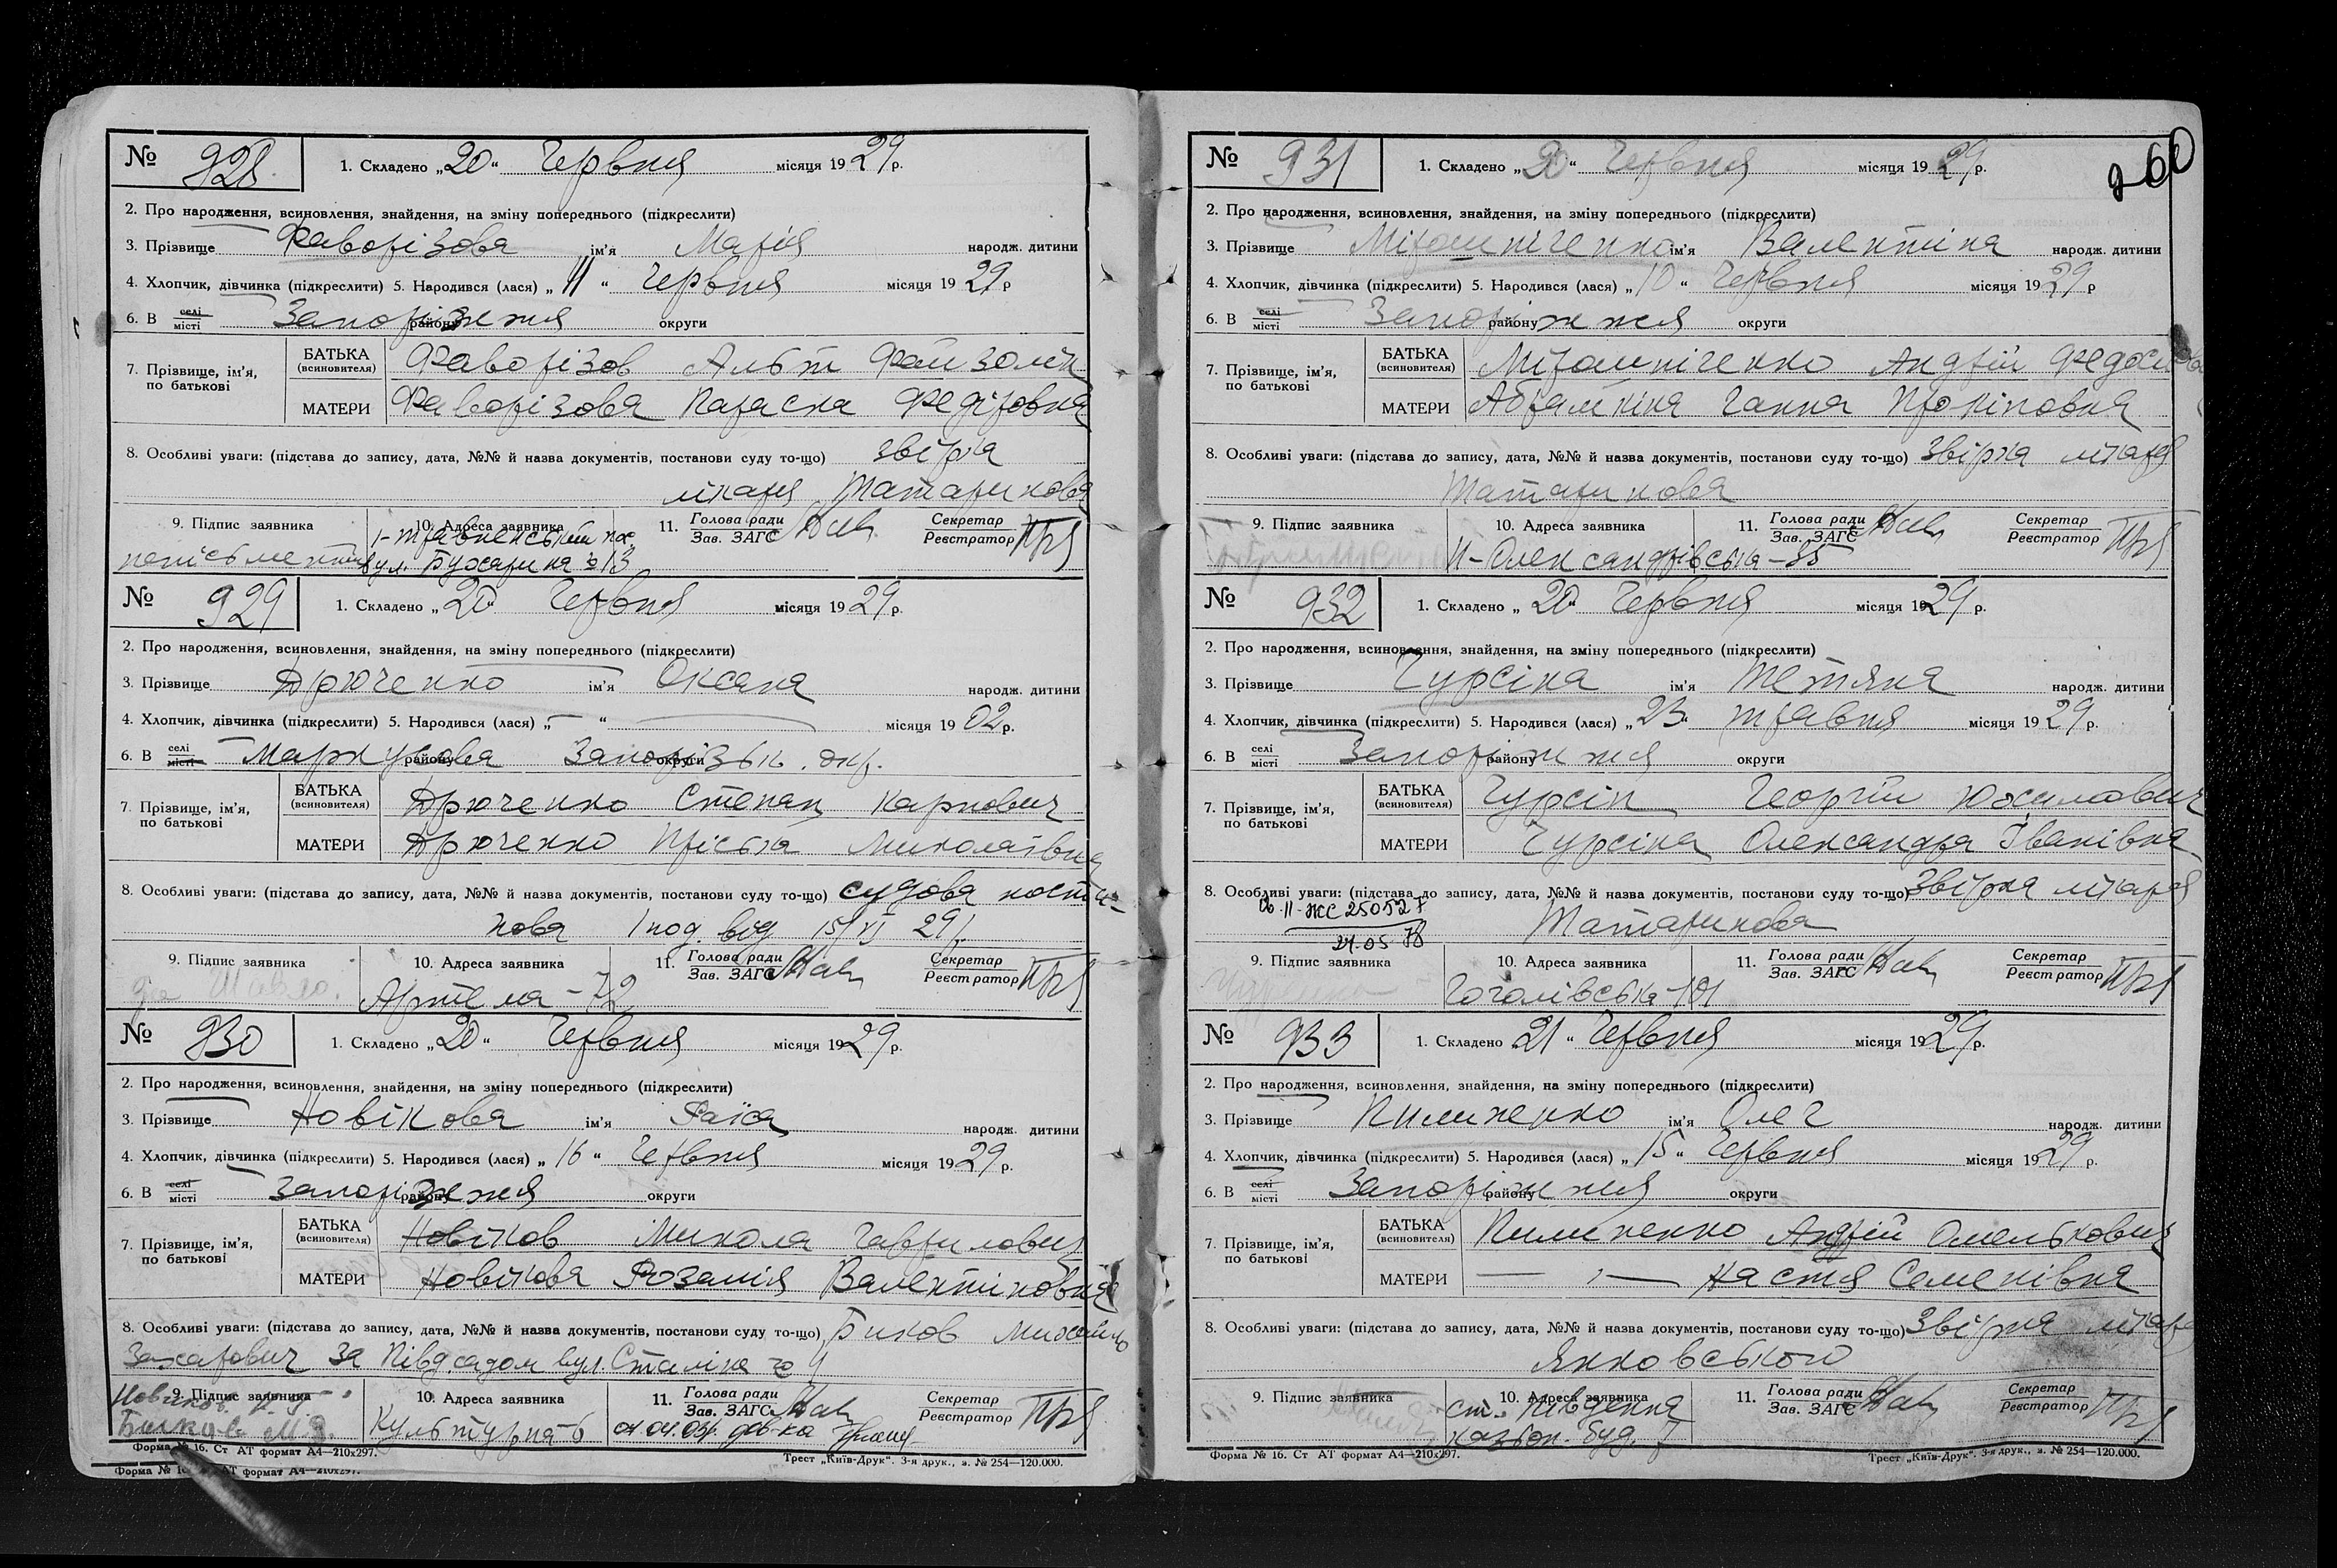 № 928. 1. Складено „20“ Червня місяця 1929 р.
2. Про народження, всиновлення, знайдення, на зміну попереднього (підкреслити)
3. Прізвище Фаворізова ім'я Марія народж. дитини
4. Хлопчик, дівчинка (підкреслити) 5. Народився (лася) „11“ Червня місяця 1929 р
6. В селі місті Запоріжжя району округи
7. Прізвище, ім'я, по батькові
БАТЬКА (всиновителя) Фаворізов
МАТЕРИ Фаворізова Параска Федіровна
8. Особливі уваги: (підстава до запису, дата, №№ й назва документів, постанови суду то-що) звірка
лікаря Татаринова
9. Підпис заявника 10. Адреса заявника 11. Голова ради Зав. ЗАГС Секретар Реєстратор
вул. Бухарина № 13
№ 929 1. Складено „20“ Червня місяця 1929 р.
2. Про народження, всиновлення, знайдення, на зміну попереднього (підкреслити)
3. Прізвище Дрюченко ім'я Оксана народж. дитини
4. Хлопчик, дівчинка (підкреслити) 5. Народився (лася) „—“ — місяця 1902 р.
6. В селі місті Маркусова району Запорізьк. округи окр.
7. Прізвище, ім'я, по батькові
БАТЬКА (всиновителя) Дрюченко Степан Карпович
МАТЕРИ Дрюченко Пріська Миколаївна
8. Особливі уваги: (підстава до запису, дата, №№ й назва документів, постанови суду то-що) судова поста-
нова 1 под. від 15/VI 29 р.
9. Підпис заявника 10. Адреса заявника 11. Голова ради Зав. ЗАГС Секретар Реєстратор
Артема - 72
№ 930 1. Складено „20“ Червня місяця 1929 р.
2. Про народження, всиновлення, знайдення, на зміну попереднього (підкреслити)
3. Прізвище Новікова ім'я Раїса народж. дитини
4. Хлопчик, дівчинка (підкреслити) 5. Народився (лася) „16“ Червня місяця 1929 р.
6. В селі місті Запоріжжя району округи
7. Прізвище, ім'я, по батькові
БАТЬКА (всиновителя) Новіков Микола Гаврилович
МАТЕРИ Новікова Розалія Валентіновна
8. Особливі уваги: (підстава до запису, дата, №№ й назва документів, постанови суду то-що) Биков Михайло
Захарович за Півд. садом вул. Сталіна № 9
9. Підпис заявника 10. Адреса заявника 11. Голова ради Зав. ЗАГС Секретар Реєстратор
Биков М.З. Культурна - 6
Форма № 16. Ст АТ формат А4—210х297. Трест „Київ-Друк“. 3-я друк., з. № 254—120.000.
260
№ 931 1. Складено „20“ Червня місяця 1929 р.
2. Про народження, всиновлення, знайдення, на зміну попереднього (підкреслити)
3. Прізвище Мірошніченко ім'я Валентіна народж. дитини
4. Хлопчик, дівчинка (підкреслити) 5. Народився (лася) „10“ Червня місяця 1929 р
6. В селі місті Запоріжжя району округи
7. Прізвище, ім'я, по батькові
БАТЬКА (всиновителя) Мірошніченко Андрій
МАТЕРИ Абрамкіна Ганна Прокіповна
8. Особливі уваги: (підстава до запису, дата, №№ й назва документів, постанови суду то-що) звірка лікаря
Татаринова
9. Підпис заявника 10. Адреса заявника 11. Голова ради Зав. ЗАГС Секретар Реєстратор
Н-Олександрівська - 85
№ 932 1. Складено „20“ Червня місяця 1929 р.
2. Про народження, всиновлення, знайдення, на зміну попереднього (підкреслити)
3. Прізвище Чурсіна ім'я Тетяна народж. дитини
4. Хлопчик, дівчинка (підкреслити) 5. Народився (лася) „23“ травня місяця 1929 р.
6. В селі місті Запоріжжя району округи
7. Прізвище, ім'я, по батькові
БАТЬКА (всиновителя) Чурсін Георгій
МАТЕРИ Чурсіна Олександра Іванівна
8. Особливі уваги: (підстава до запису, дата, №№ й назва документів, постанови суду то-що) Звірка лікаря
II-ЖС 250527 Татаринова
24.05.78
9. Підпис заявника 10. Адреса заявника 11. Голова ради Зав. ЗАГС Секретар Реєстратор
Гоголівська - 101
№ 933 1. Складено „21“ Червня місяця 1929 р.
2. Про народження, всиновлення, знайдення, на зміну попереднього (підкреслити)
3. Прізвище Пилипенко ім'я Олег народж. дитини
4. Хлопчик, дівчинка (підкреслити) 5. Народився (лася) „15“ Червня місяця 1929 р.
6. В селі місті Запоріжжя району округи
7. Прізвище, ім'я, по батькові
БАТЬКА (всиновителя) Пилипенко Андрій Омелькович
МАТЕРИ — „ — Настя Семенівна
8. Особливі уваги: (підстава до запису, дата, №№ й назва документів, постанови суду то-що) Звірка лікаря
Янковського
9. Підпис заявника 10. Адреса заявника 11. Голова ради Зав. ЗАГС Секретар Реєстратор
ст. Південна
буд. 7
Форма № 16. Ст АТ формат А4—210х297. Трест „Київ-Друк“. 3-я друк., з. № 254—120.000.